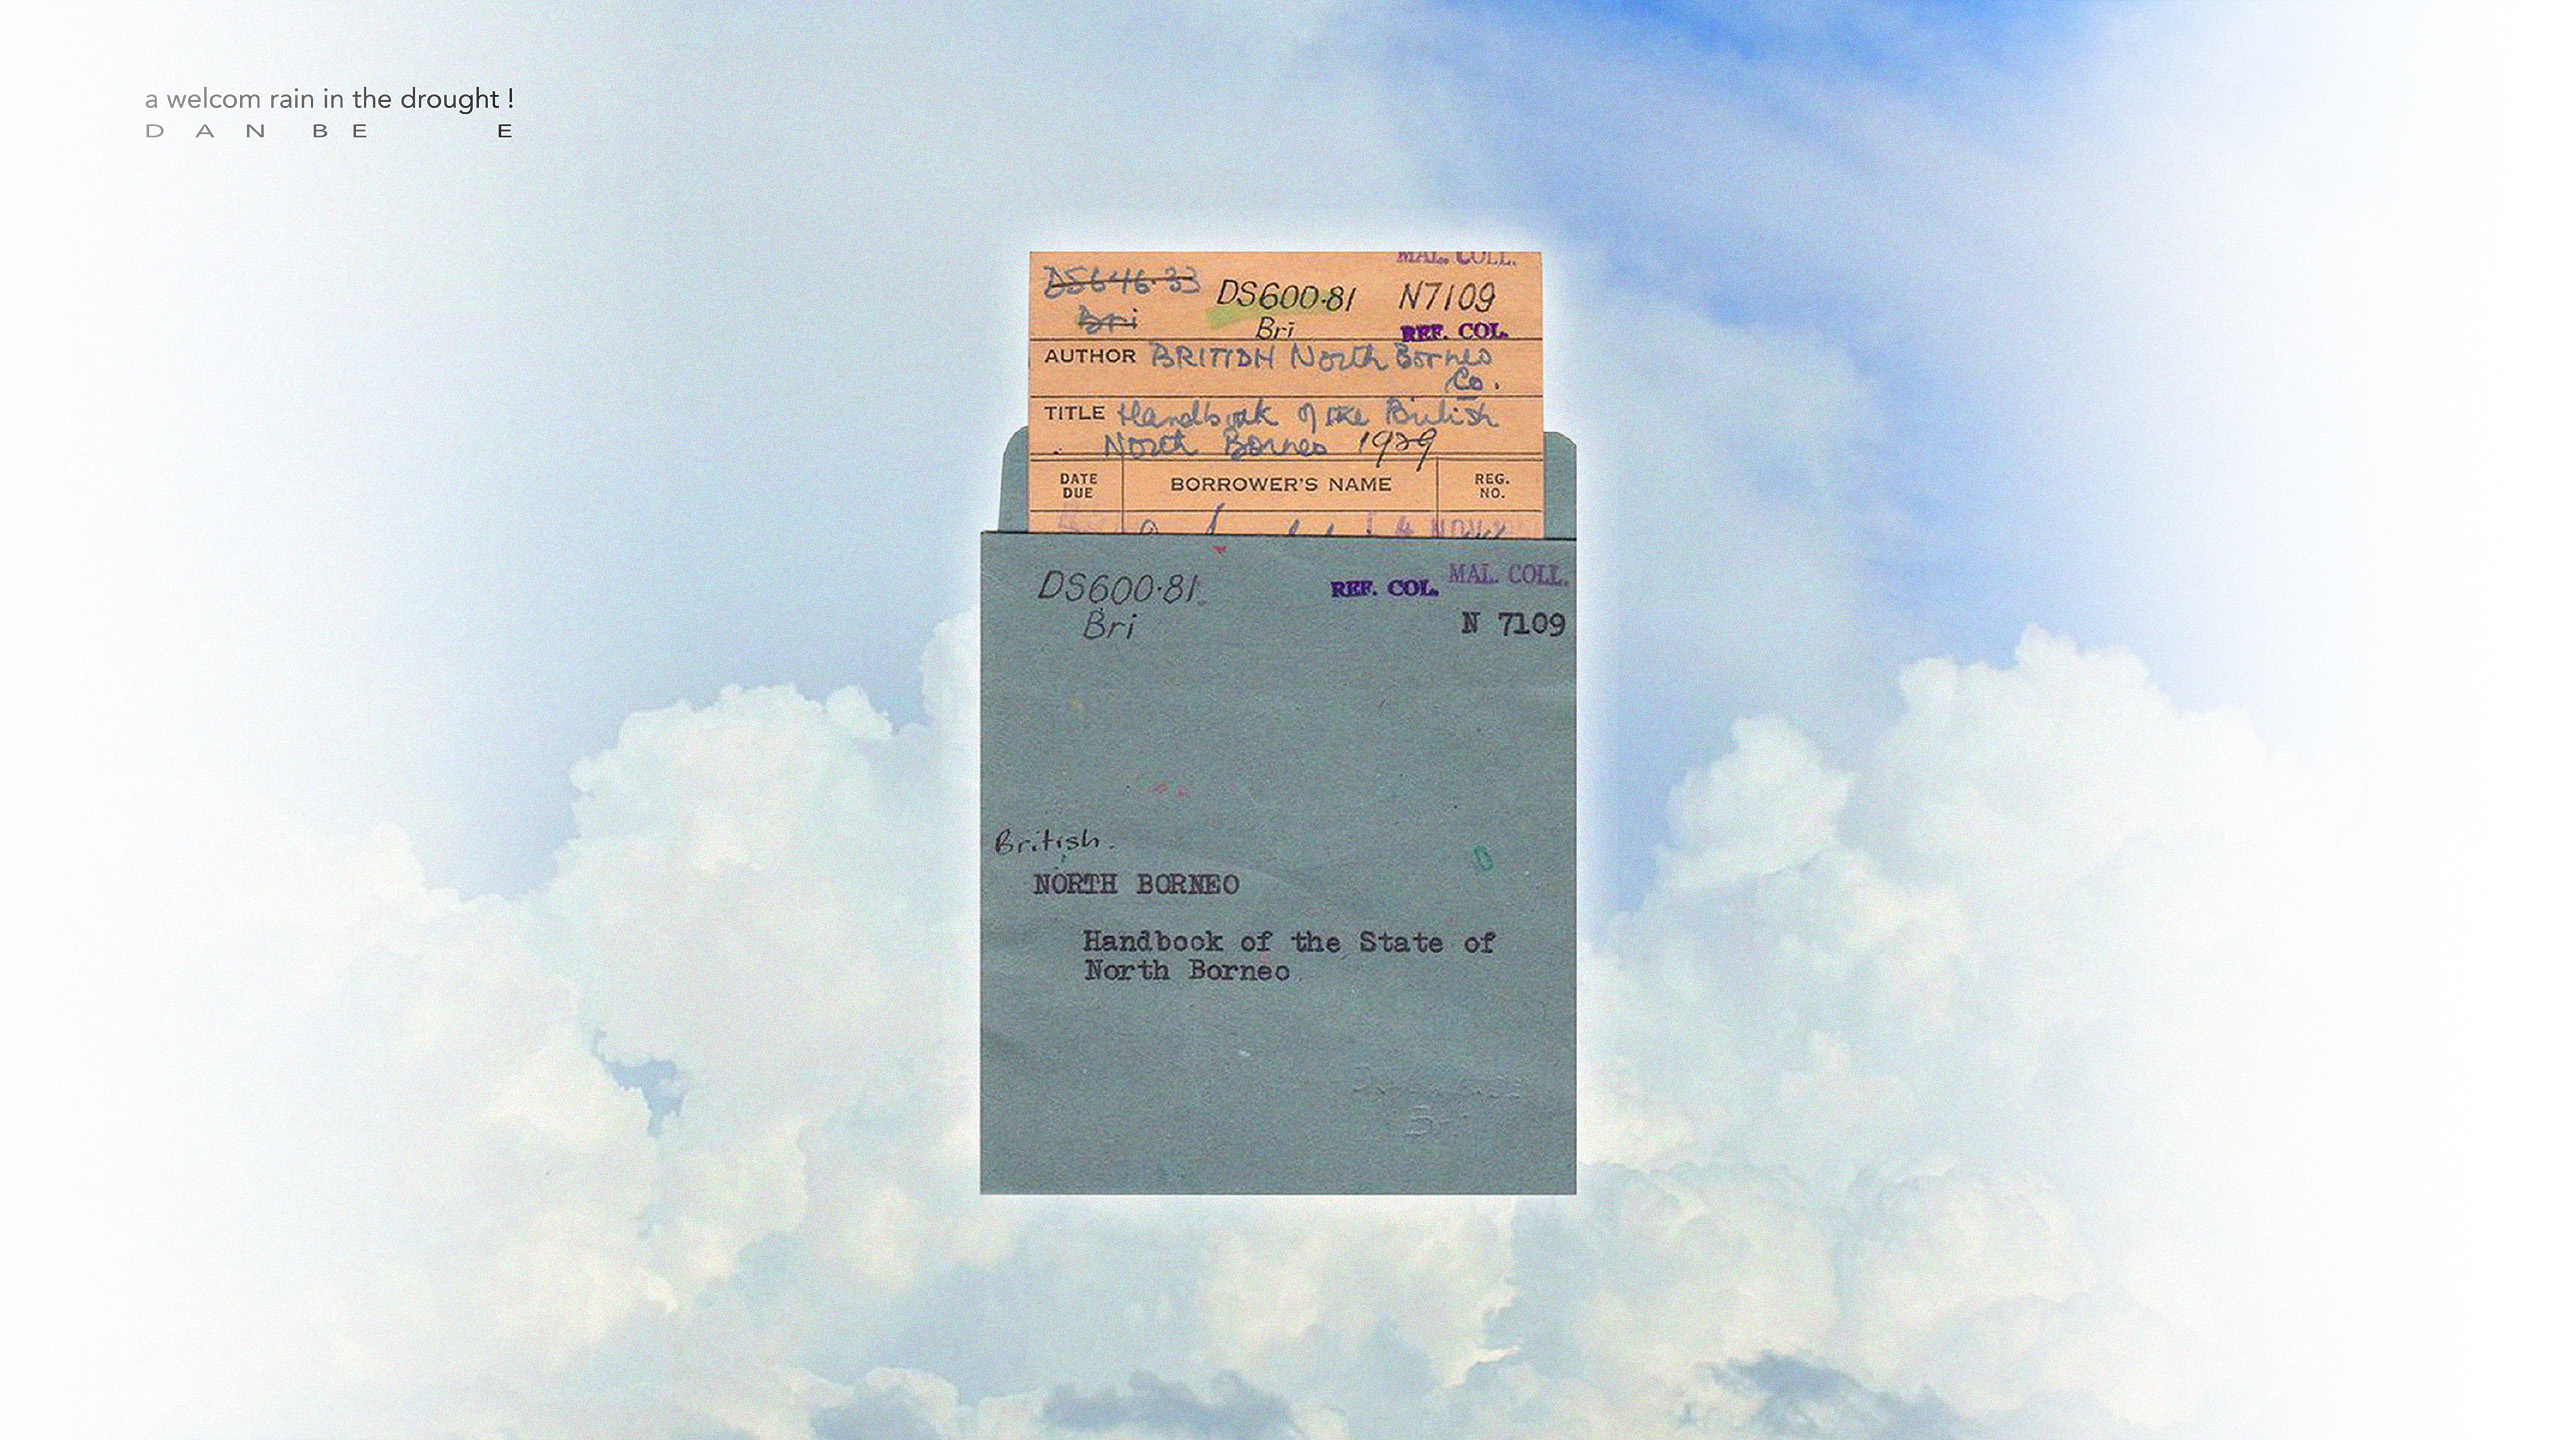 a welcom rain in the drought !
D A N B E E
MAL. COLL.
DS646.33
Bri
DS600.81
Bri
N7109
REF. COL.
AUTHOR BRITISH North Borneo
Co.
TITLE Handbook of the British
North Borneo 1929
DATE
DUE
BORROWER'S NAME
REG.
NO.
4 NOV
DS600.81
Bri
REF. COL.
MAL. COLL.
N 7109
British.
NORTH BORNEO
Handbook of the State of
North Borneo